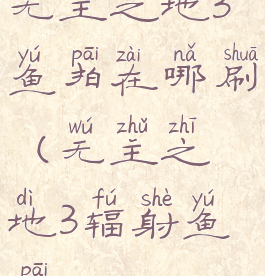 无主之地3
yú pāi zài nǎ shuā
鱼拍在哪刷
wú zhǔ zhī
（无主之
dì fú shè yú
地3辐射鱼
pāi